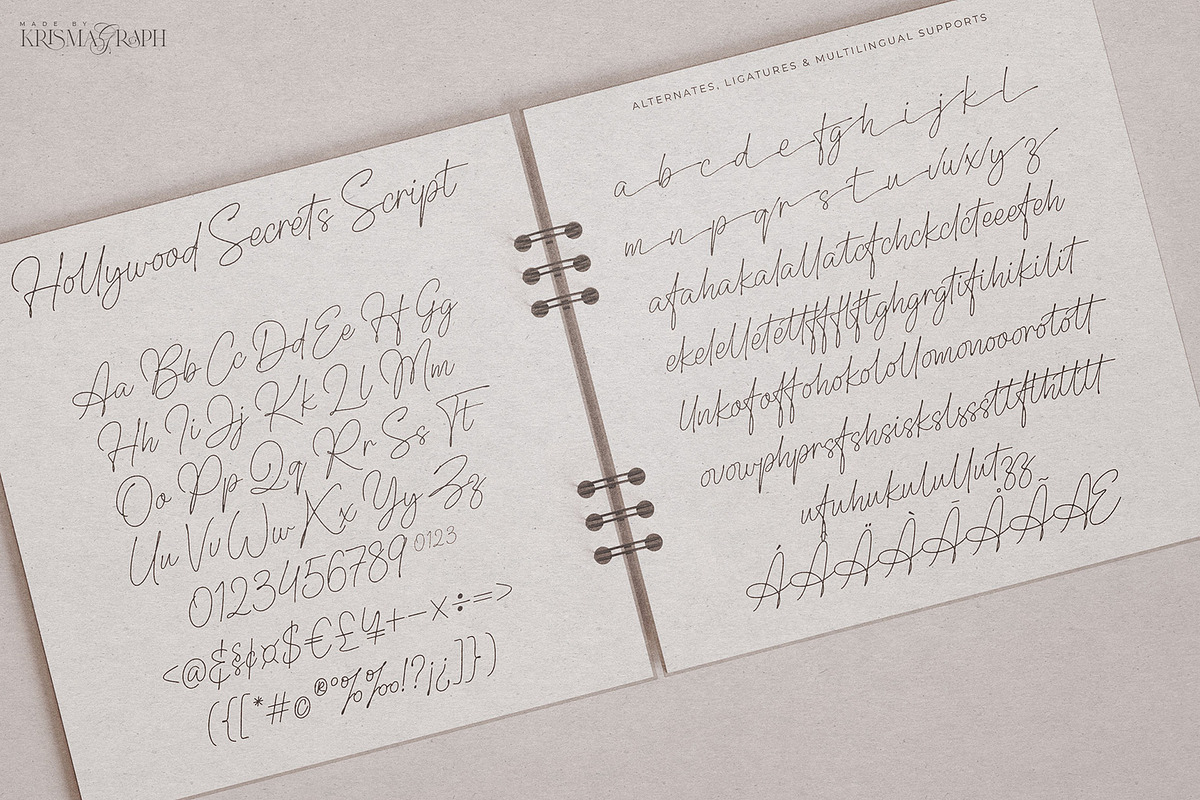 MADE BY
KRISMAGRAPH
Hollywood Secrets Script
Aa Bb Cc Dd Ee Ff Gg
Hh Ii Jj Kk Ll Mm
Oo Pp Qq Rr Ss Tt
Uu Vv Ww Xx Yy Zz
0123456789 0123
<@&§¢¤$€£¥+−×÷=>
({[*#©®°º%‰!?¡¿]})
ALTERNATES, LIGATURES & MULTILINGUAL SUPPORTS
a b c d e f g h i j k l
m n p q r s t u v w x y z
afahakalallatcfchckclcteeefeh
ekelelletettffffflftghgrgtifihikilit
ovowphprsfshsiskslssssttfthtltt
ufuhukulullutzz